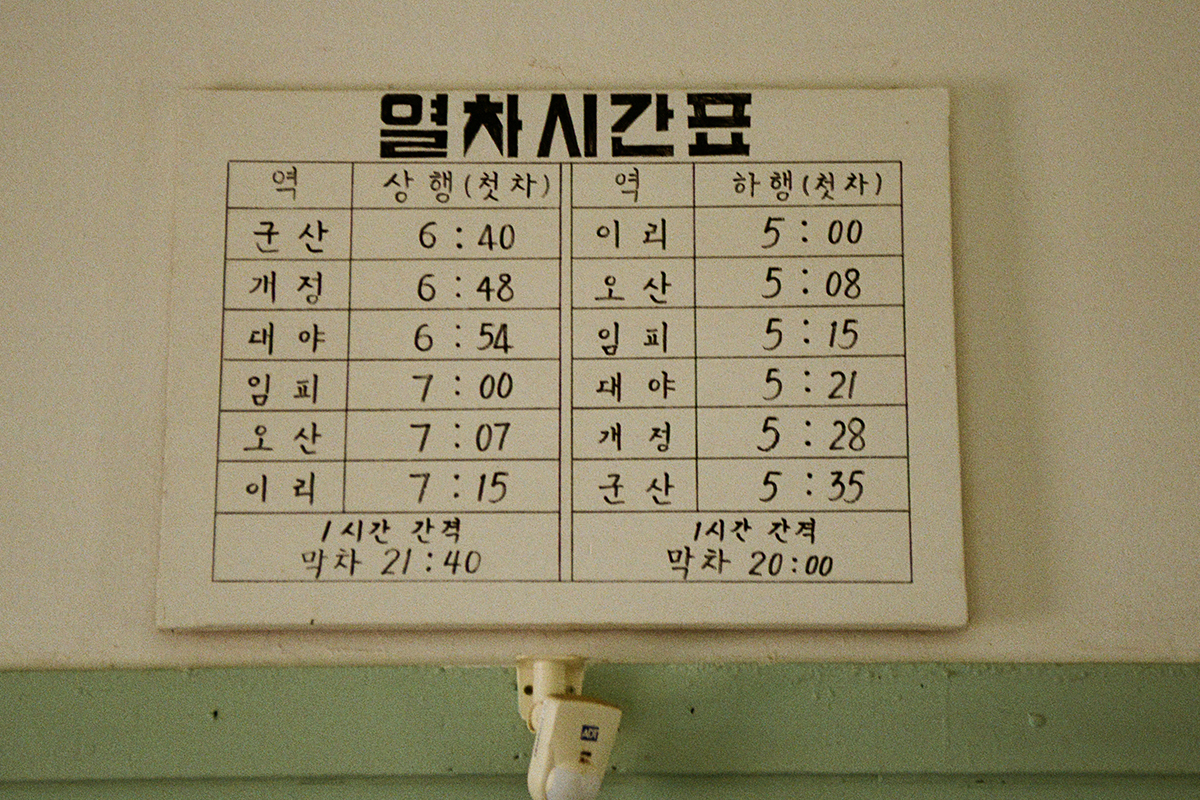 열차시간표
역 상행(첫차) 역 하행(첫차)
군산 6:40 이리 5:00
개정 6:48 오산 5:08
대야 6:54 임피 5:15
임피 7:00 대야 5:21
오산 7:07 개정 5:28
이리 7:15 군산 5:35
1시간 간격 1시간 간격
막차 21:40 막차 20:00
ADT